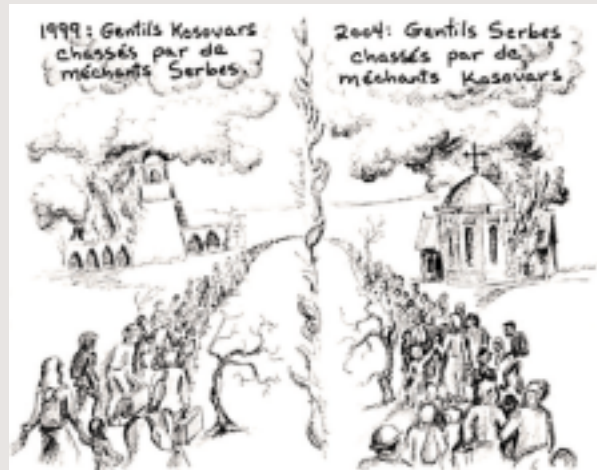 1999: Gentils Kosovars
chassés par de
méchants Serbes.
2004: Gentils Serbes
chassés par de
méchants Kosovars